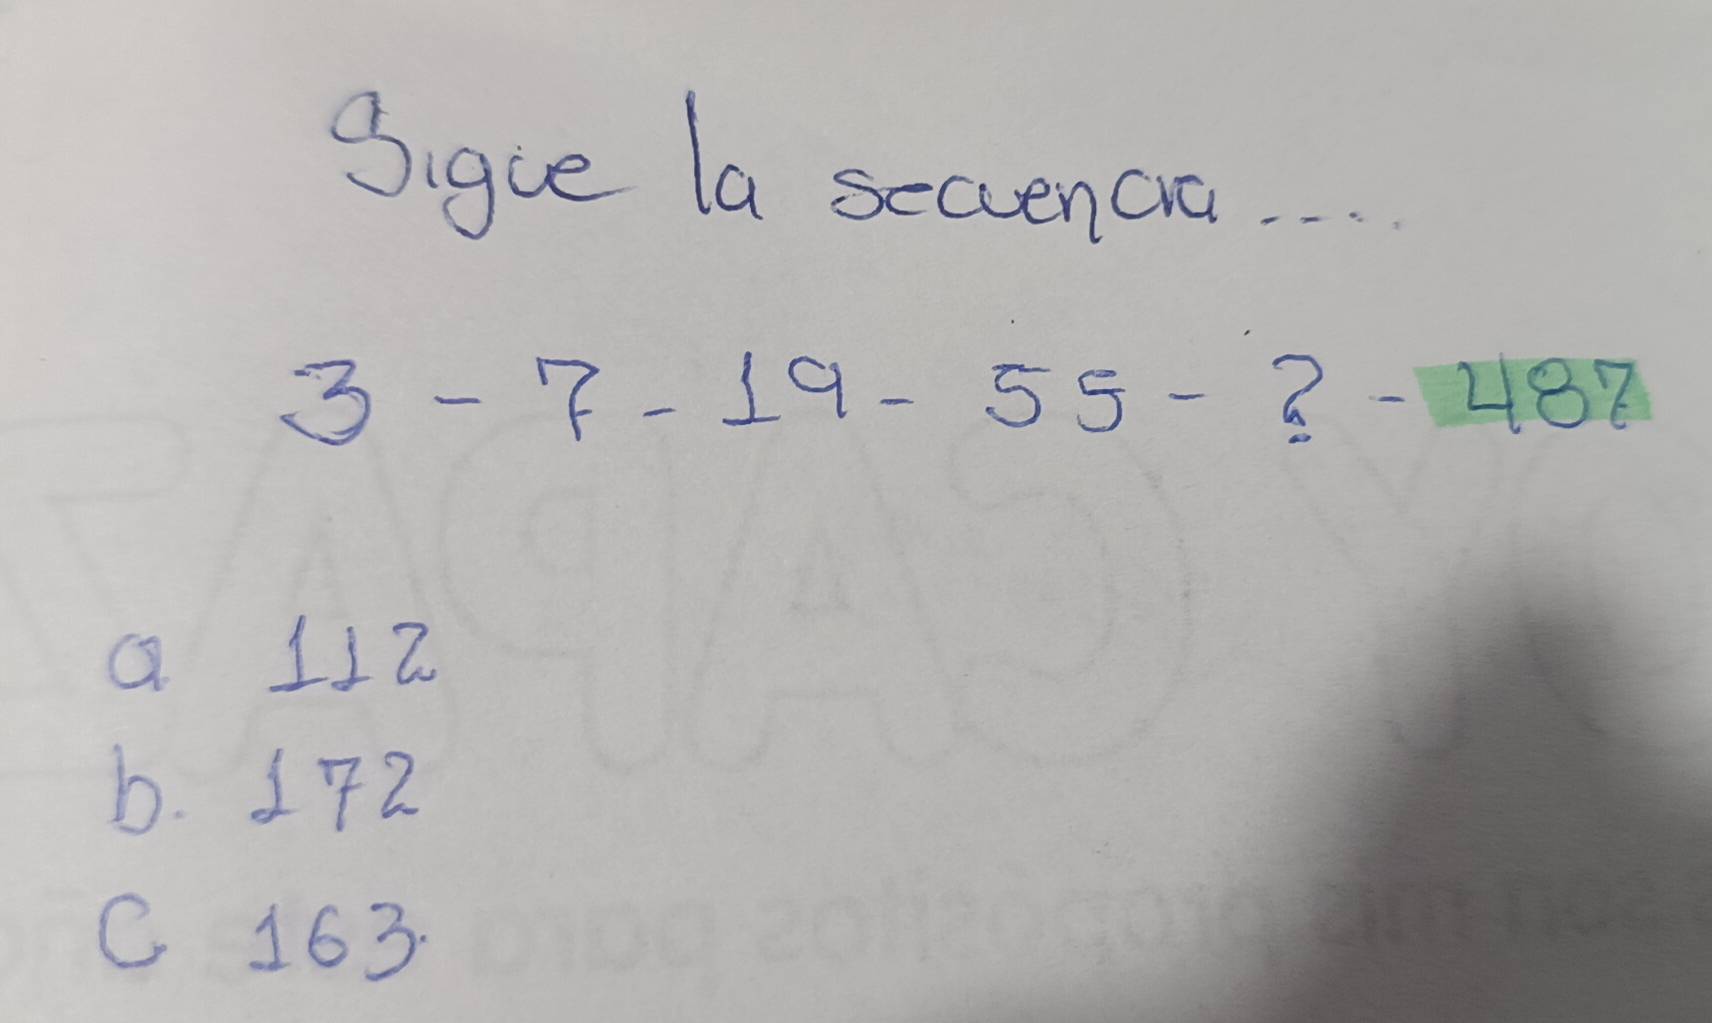 Sigue la secuencia ....
3 - 7 - 19 - 55 - ? - 487
a 112
b. 172
C 163.